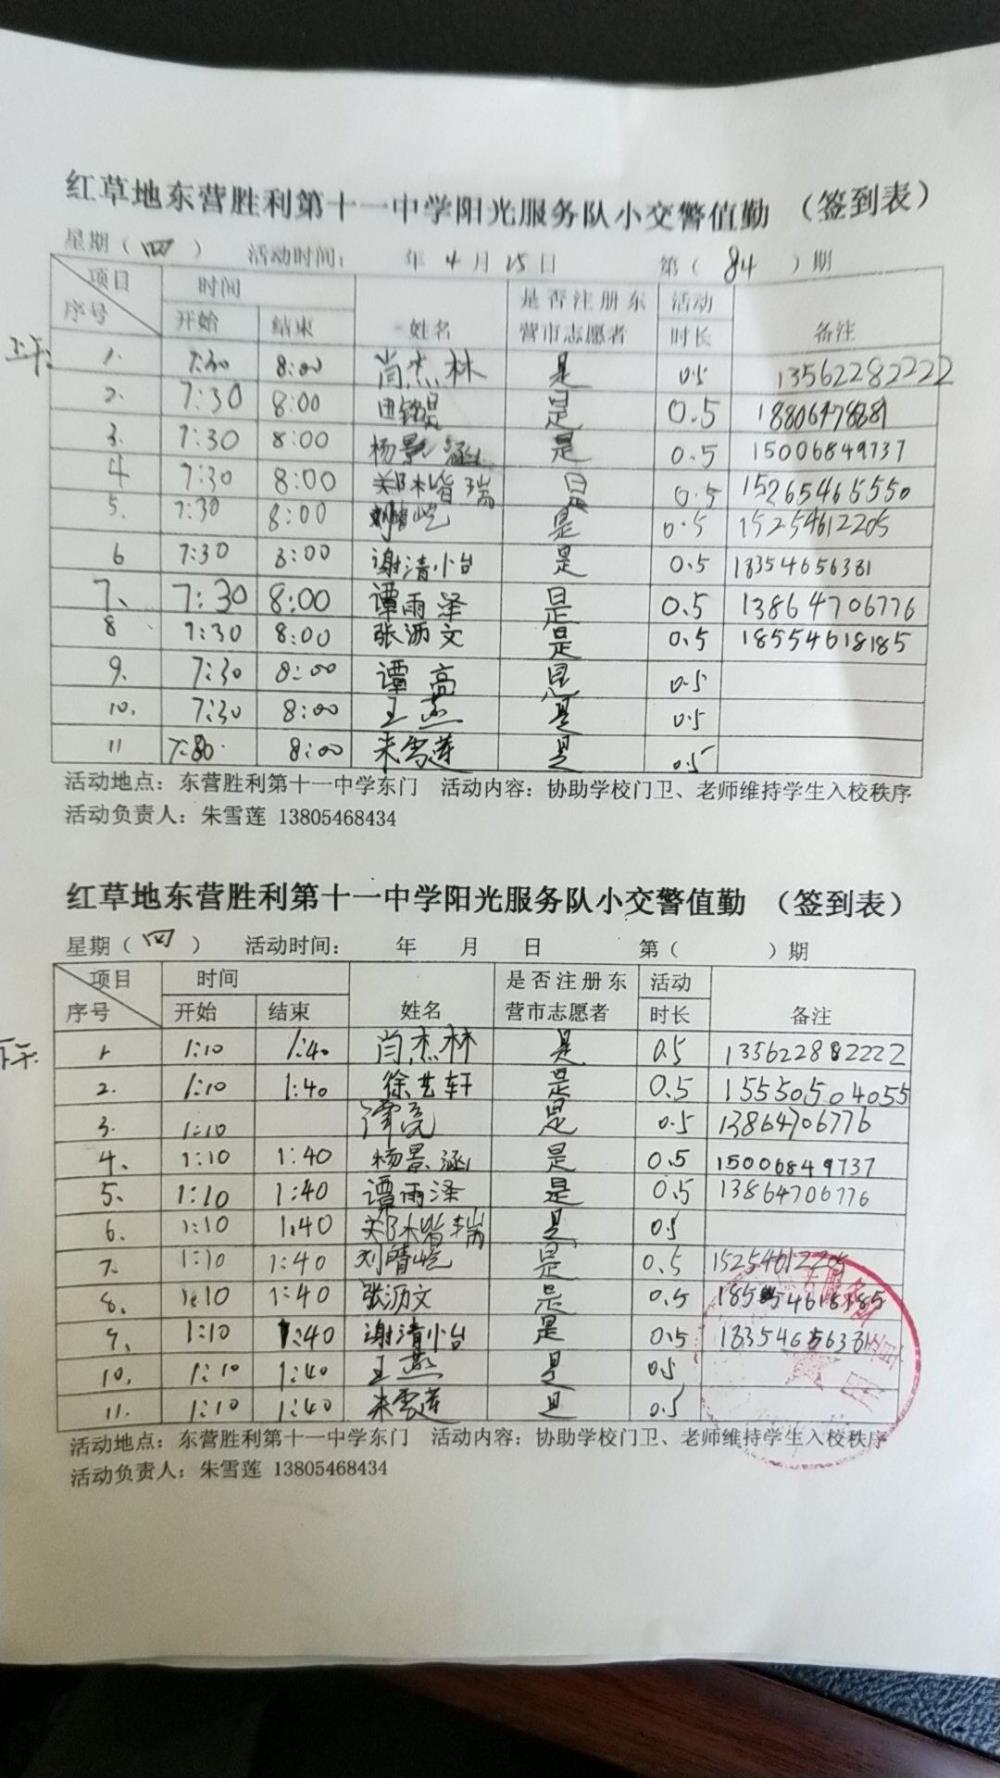 红草地东营胜利第十一中学阳光服务队小交警值勤 （签到表）
星期（四） 活动时间： 年 4 月 15 日 第（ 84 ）期
项目 时间 姓名 是否注册东营市志愿者 活动时长 备注
序号 开始 结束
上午
1. 7:30 8:00 肖杰林 是 0.5 13562282222
2. 7:30 8:00 是 0.5
3. 7:30 8:00 杨景涵 是 0.5 15006849737
4 7:30 8:00 郑皆瑞 是 0.5 15265465550
5. 7:30 8:00 刘晴屹 是 0.5 15254612205
6 7:30 8:00 谢清小台 是 0.5 18354656381
7、 7:30 8:00 谭雨泽 是 0.5 13864706776
8 7:30 8:00 张沥文 是 0.5 18554618185
9. 7:30 8:00 谭亮 是 0.5
10. 7:30 8:00 王燕 是 0.5
11 7:30 8:00 朱雪莲 是 0.5
活动地点：东营胜利第十一中学东门 活动内容：协助学校门卫、老师维持学生入校秩序
活动负责人：朱雪莲 13805468434
红草地东营胜利第十一中学阳光服务队小交警值勤 （签到表）
星期（四） 活动时间： 年 月 日 第（ ）期
项目 时间 姓名 是否注册东营市志愿者 活动时长 备注
序号 开始 结束
下午
1 1:10 1:40 肖杰林 是 0.5 135622882222
2. 1:10 1:40 徐艺轩 是 0.5 15550504055
3. 1:10 谭亮 是 0.5 13864706776
4、 1:10 1:40 杨景涵 是 0.5 15006849737
5、 1:10 1:40 谭雨泽 是 0.5 13864706776
6. 1:10 1:40 郑皆瑞 是 0.5
7. 1:10 1:40 刘晴屹 是 0.5 15254612205
8. 1:10 1:40 张沥文 是 0.5 18554618185
9、 1:10 1:40 谢清小台 是 0.5 18354656381
10. 1:10 1:40 王燕 是 0.5
11. 1:10 1:40 朱雪莲 是 0.5
活动地点：东营胜利第十一中学东门 活动内容：协助学校门卫、老师维持学生入校秩序
活动负责人：朱雪莲 13805468434